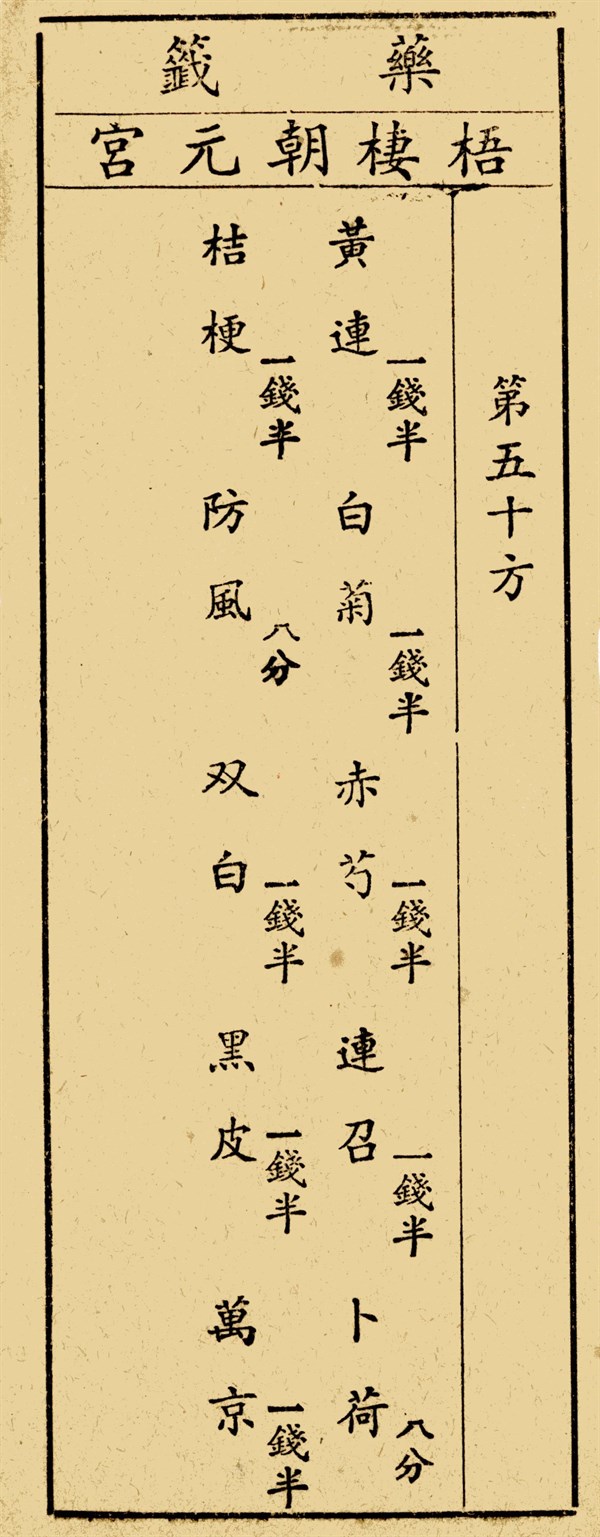 藥籤
梧棲朝元宮
第五十方
黃連一錢半 白菊一錢半 赤芍一錢半 連召一錢半 卜荷八分
桔梗一錢半 防風八分 双白一錢半 黑皮一錢半 萬京一錢半